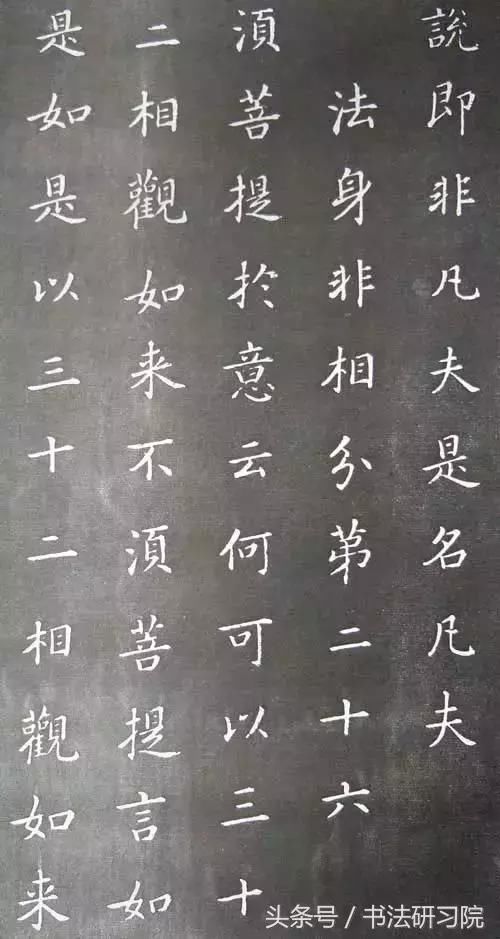 說即非凡夫是名凡夫
法身非相分第二十六
須菩提於意云何可以三十
二相觀如来不須菩提言如
是如是以三十二相觀如来
头条号/书法研习院